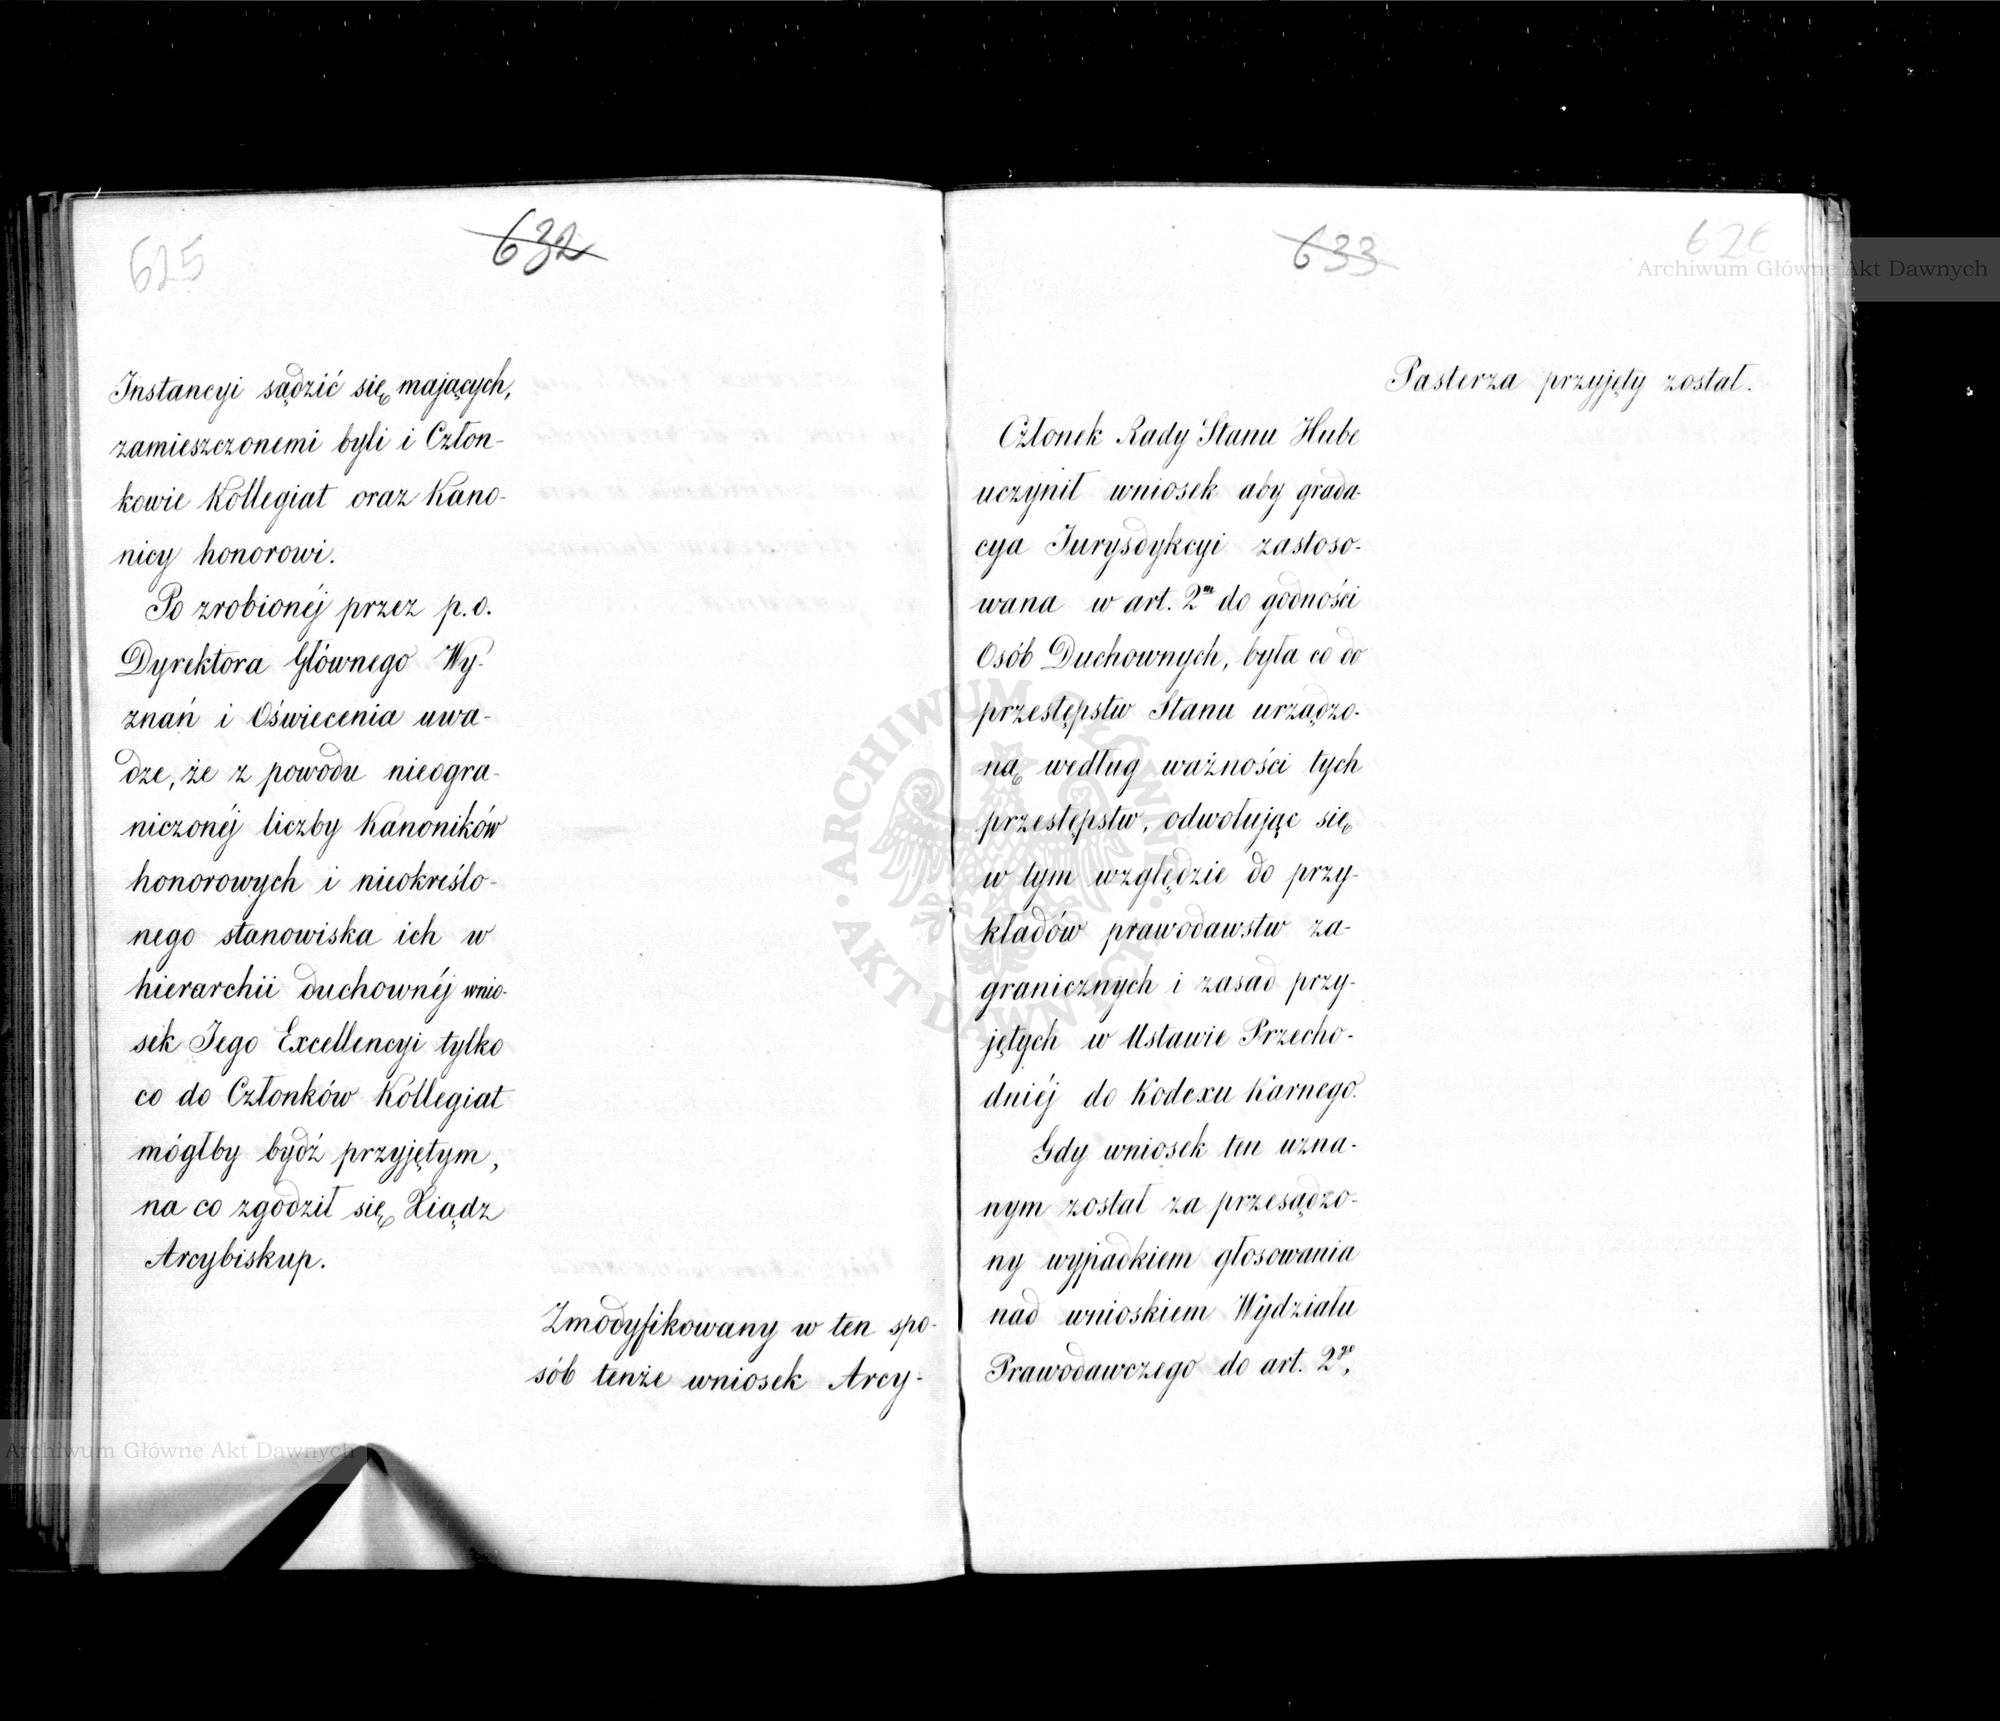 625
632
Instancyi sądzić się mających,
zamieszczonemi byli i Człon-
kowie Kollegiat oraz Kano-
nicy honorowi.
Po zrobionéj przez p.o.
Dyrektora Głównego Wy-
znań i Oświecenia uwa-
dze, że z powodu nieogra-
niczonéj liczby Kanoników
honorowych i nieokreślo-
nego stanowiska ich w
hierarchii duchownéj wnio-
sek Jego Excellencyi tylko
co do Członków Kollegiat
mógłby bydź przyjętym,
na co zgodził się Xiądz
Arcybiskup.
Zmodyfikowany w ten spo-
sób tenże wniosek Arcy-
633
626
Pasterza przyjęty został.
Członek Rady Stanu Hube
uczynił wniosek aby grada-
cya Jurysdykcyi zastoso-
wana w art. 2m do godności
Osób Duchownych, była co do
przestępstw Stanu urządzo-
ną według ważności tych
przestępstw, odwołując się
w tym względzie do przy-
kładów prawodawstw za-
granicznych i zasad przy-
jętych w Ustawie Przecho-
dniéj do Kodexu Karnego.
Gdy wniosek ten uzna-
nym został za przesądzo-
ny wypadkiem głosowania
nad wnioskiem Wydziału
Prawodawczego do art. 2go,
Archiwum Główne Akt Dawnych
ARCHIWUM GŁÓWNE
AKT DAWNYCH
Archiwum Główne Akt Dawnych